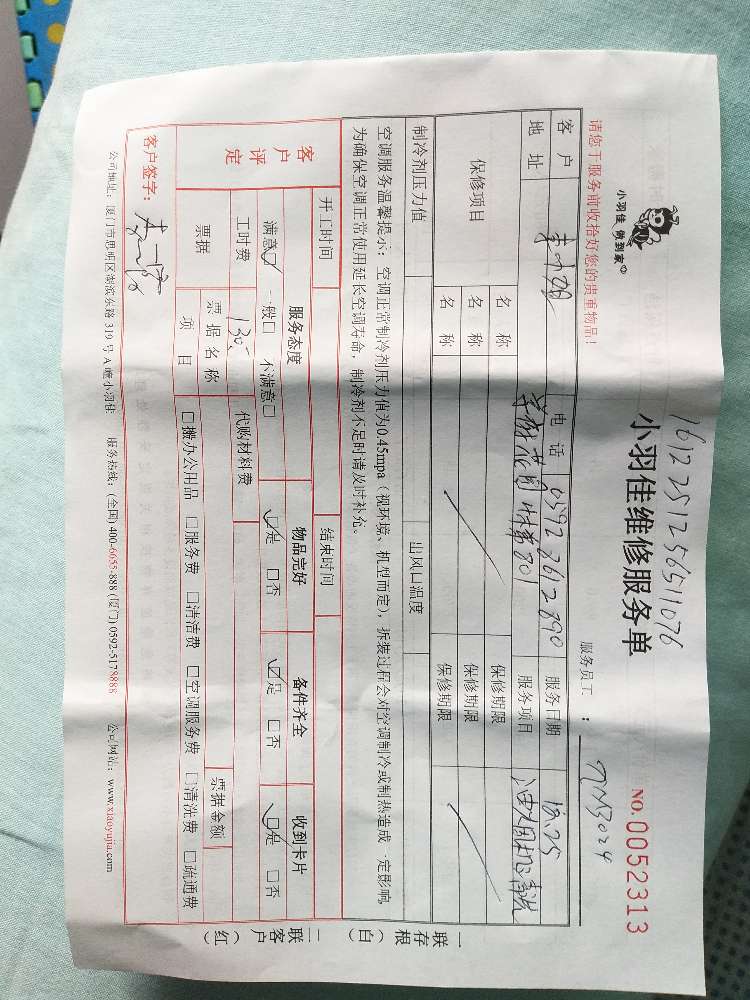 1612251256511076
小羽佳 做到家
小羽佳维修服务单
NO.0052313
请您于服务前收拾好您的贵重物品!
服务员工：
客户
电话 0592 3612890
服务日期 12.25
地址
服务项目 油烟机清洗
保修项目
名称
保修期限
名称
保修期限
名称
保修期限
制冷剂压力值
出风口温度
空调服务温馨提示：空调正常制冷剂压力值为0.45mpa（视环境、机型而定），拆装过程会对空调制冷或制热造成一定影响，
为确保空调正常使用延长空调寿命，制冷剂不足时请及时补充。
开工时间
结束时间
客户评定
服务态度
物品完好
备件齐全
收到卡片
满意☑ 一般□ 不满意□
☑是 □否
☑是 □否
☑是 □否
工时费 130
代购材料费
票据
票据名称
票据金额
项目
□搬办公用品 □服务费 □清洁费 □空调服务费 □清洗费 □疏通费
客户签字：
公司地址：厦门市思明区湖滨东路 319 号 A 幢小羽佳 服务热线：(全国) 400-6655-888 (厦门) 0592-5178888 公司网站：www.xiaoyujia.com
一联存根（白）
二联客户（红）